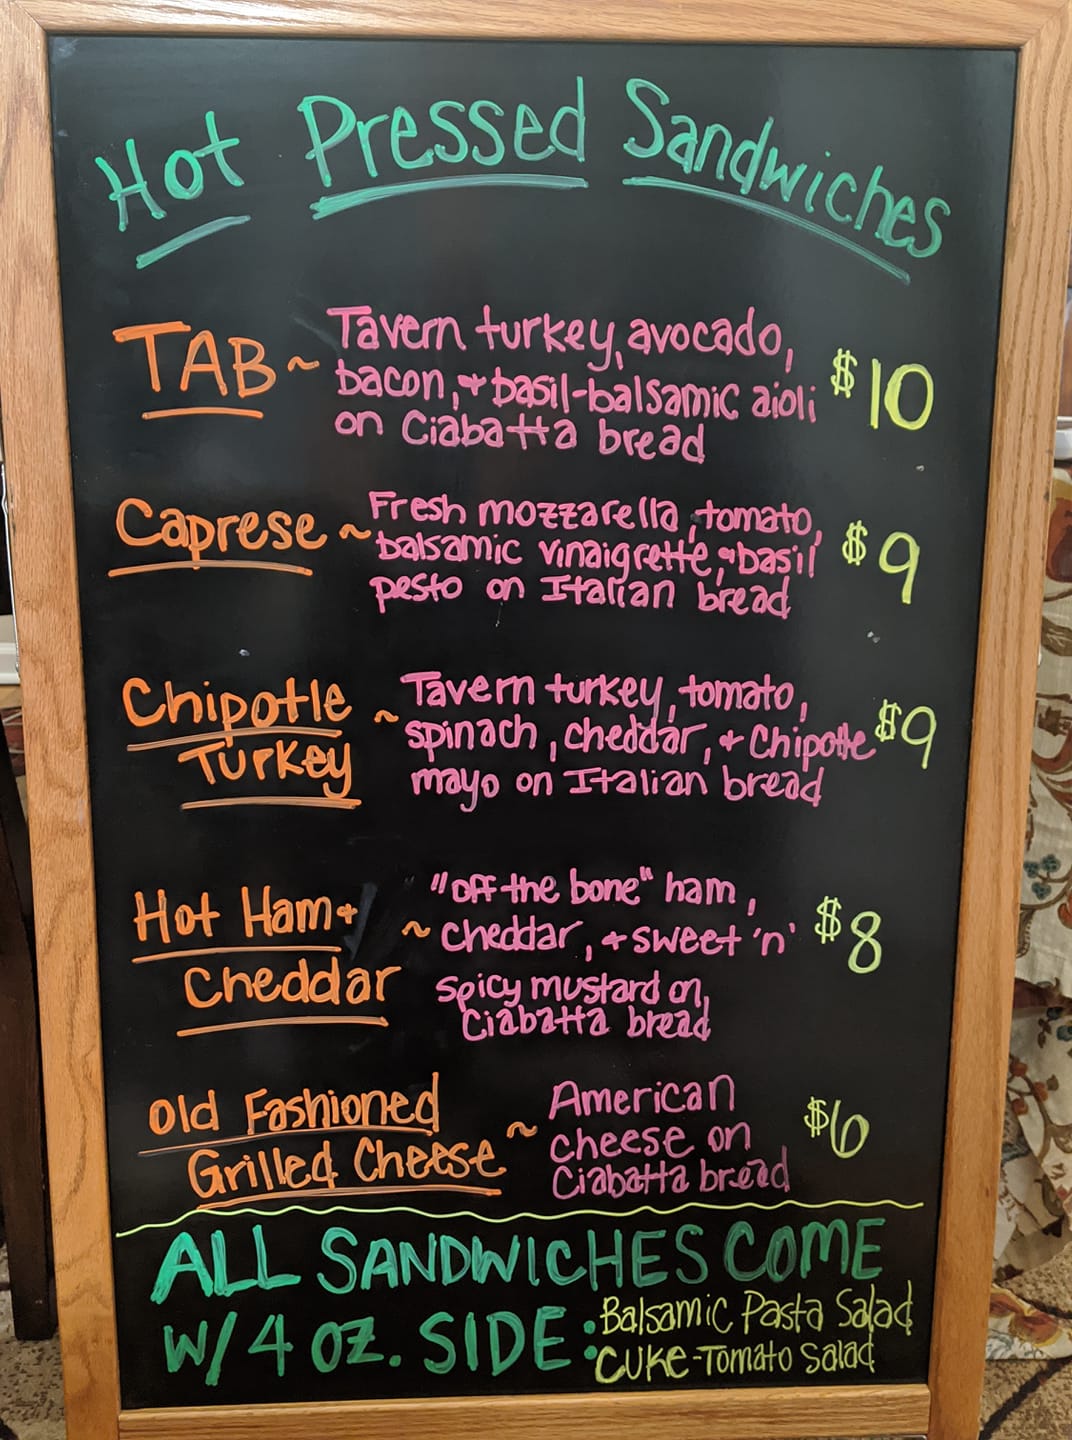 Hot Pressed Sandwiches
TAB ~ Tavern turkey, avocado,
bacon, + basil-balsamic aioli
on Ciabatta bread
$10
Caprese ~ Fresh mozzarella, tomato,
balsamic vinaigrette, + basil
pesto on Italian bread
$9
Chipotle
Turkey
~ Tavern turkey, tomato,
spinach, cheddar, + Chipotle
mayo on Italian bread
$9
Hot Ham +
Cheddar
~ "off the bone" ham,
cheddar, + sweet 'n'
spicy mustard on
Ciabatta bread
$8
Old Fashioned
Grilled Cheese
~ American
cheese on
Ciabatta bread
$6
ALL SANDWICHES COME
W/ 4 OZ. SIDE: Balsamic Pasta Salad
Cuke-Tomato Salad